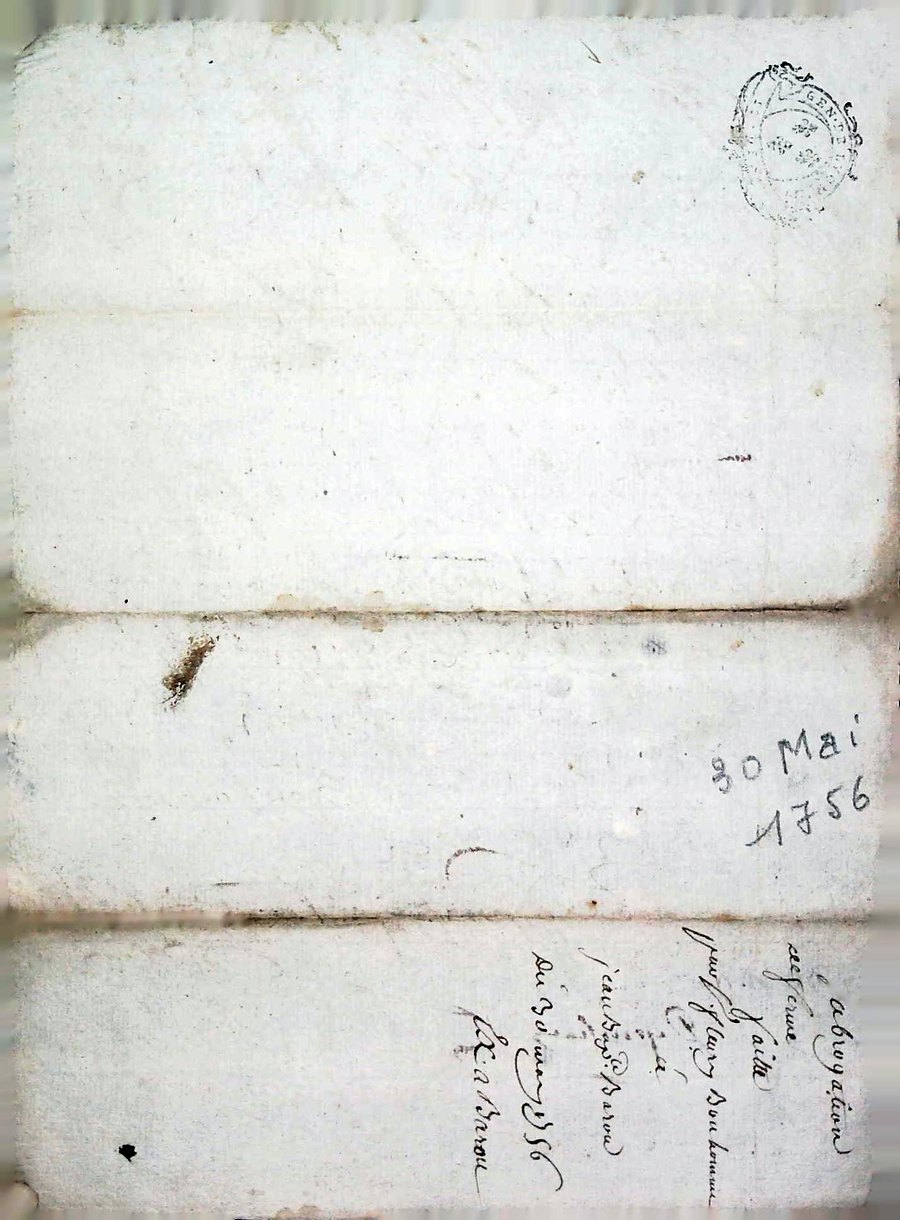 GEN. DE
30 Mai
1756
abrogation
de ferme
faitte
par fleury Bonhomme
a
jean Bapt. Barou
Du 30 may 1756
Ex a Barou